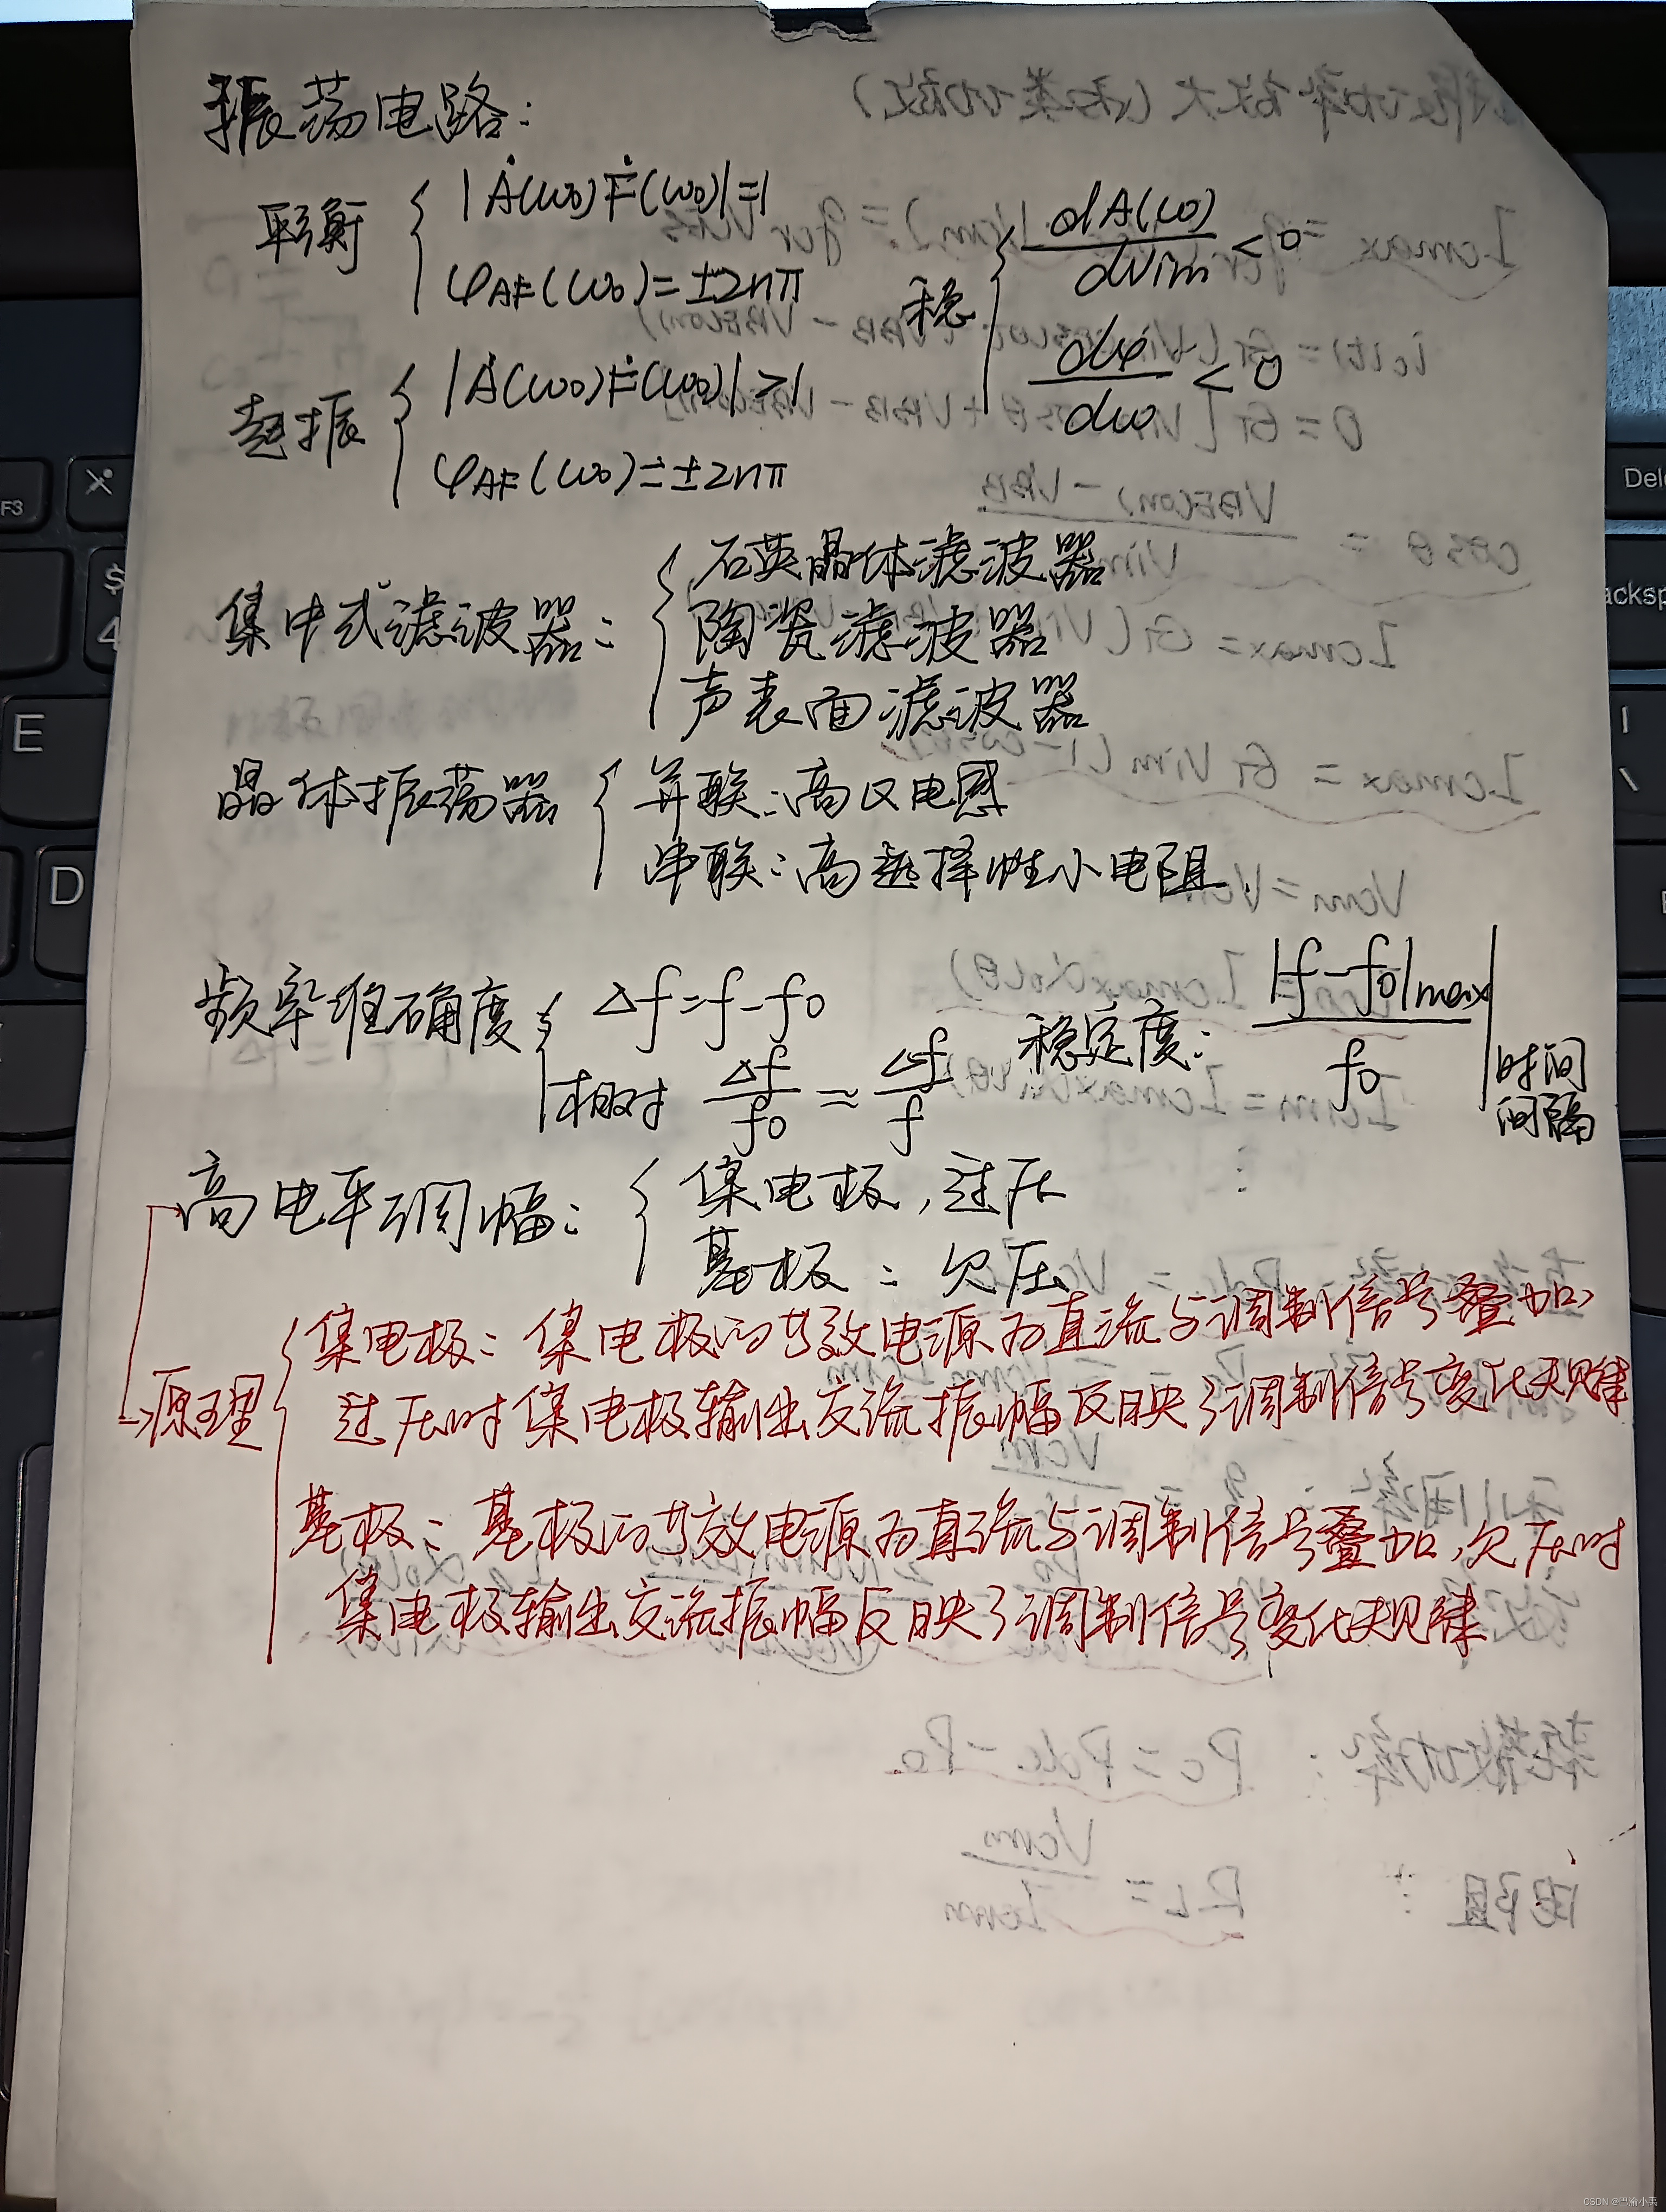 振荡电路:
平衡 { |Ȧ(ω₀)Ḟ(ω₀)|=1
φAF(ω₀)=±2nπ
稳 { dA(ω)/dVim < 0
dφ/dω < 0
起振 { |Ȧ(ω₀)Ḟ(ω₀)|>1
φAF(ω₀)=±2nπ
集中式滤波器: { 石英晶体滤波器
陶瓷滤波器
声表面滤波器
晶体振荡器 { 并联:高Q电感
串联:高选择性小电阻
频率准确度 { Δf=f-f₀
相对 Δf/f₀≈Δf/f
稳定度: |f-f₀|max/f₀ | 时间间隔
高电平调幅: { 集电极,过压
基极:欠压
原理 { 集电极:集电极的等效电源为直流与调制信号叠加,
过压时集电极输出交流振幅反映了调制信号变化规律
基极:基极的等效电源为直流与调制信号叠加,欠压时
集电极输出交流振幅反映了调制信号变化规律
F3
$
4
E
D
CSDN @巴渝小禹